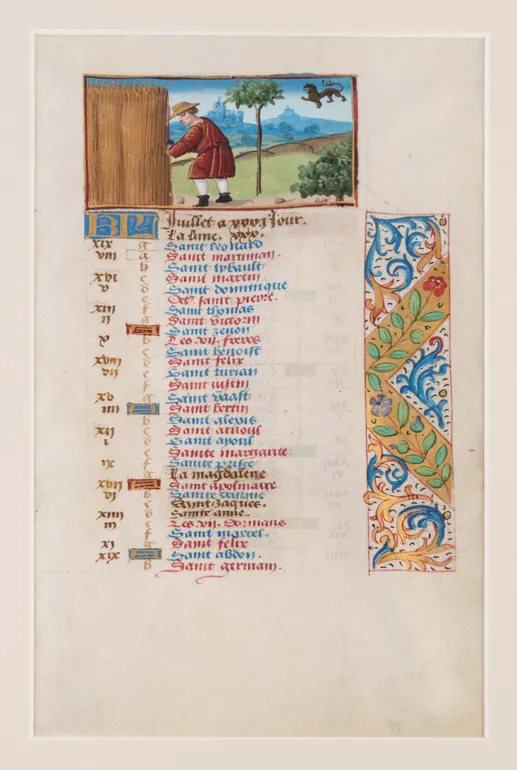 KL Juillet a xxxj Jour.
La lune. xxx.
xix g Saint leonard
viii a Saint martinian
b Saint thibault
xvi c Saint martin
v d Saint dominique
e Oct. saint pierre.
xiii f Saint thomas
ii g Saint victorin
a Saint zenon
x b Les vii. freres
c Saint benoist
xviii d Saint felix
vii e Saint turian
f Saint iustin
xv g Saint vaast
iiii a Saint bertin
b Saint alexis
xii c Saint arnoul
i d Saint
e Sainte marguerite
ix f Sainte
g La magdalene
xvii a Saint apolinaire
vi b Sainte
c Saint Jaques.
xiiii d Sainte anne.
iii e Les vii. dormans
f Saint marcel.
xi g Saint felix
xix a Saint abdon.
b Saint germain.